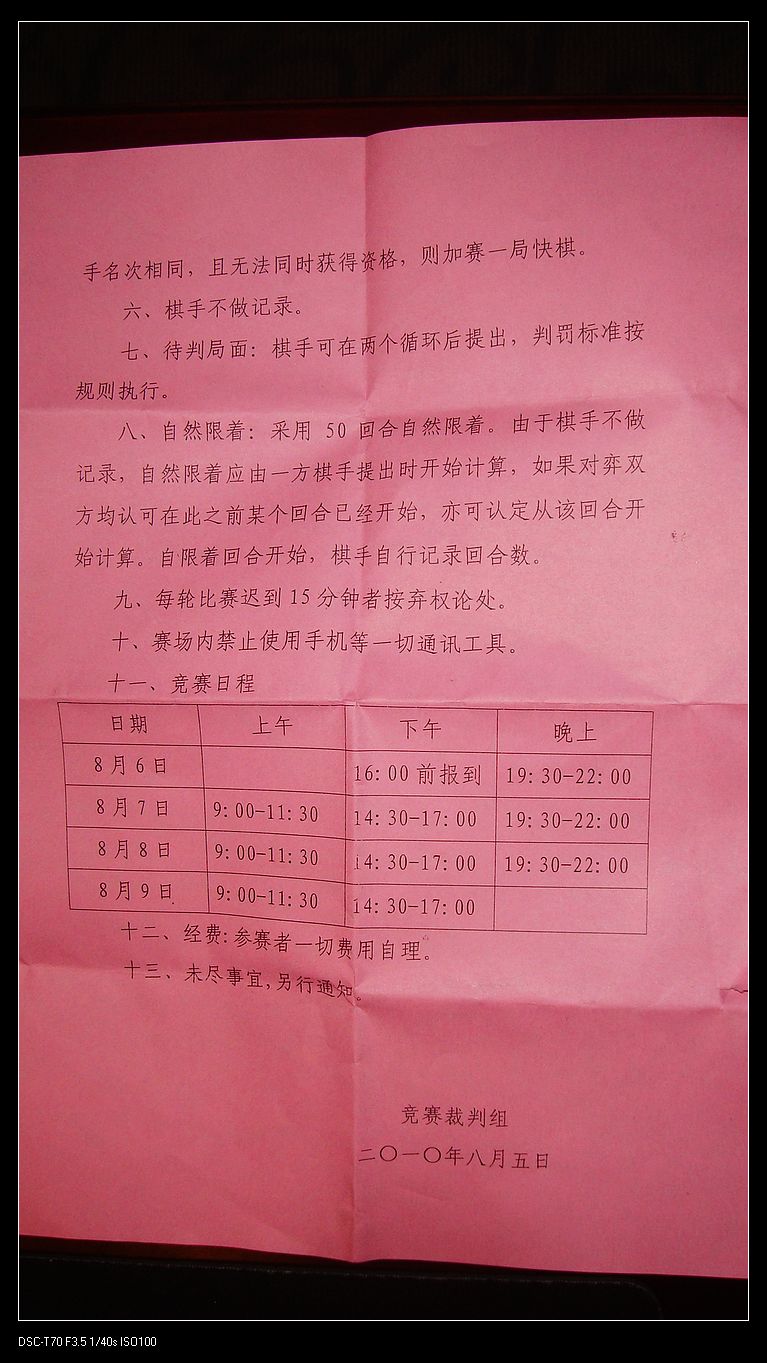 手名次相同，且无法同时获得资格，则加赛一局快棋。
六、棋手不做记录。
七、待判局面：棋手可在两个循环后提出，判罚标准按
规则执行。
八、自然限着：采用 50 回合自然限着。由于棋手不做
记录，自然限着应由一方棋手提出时开始计算，如果对弈双
方均认可在此之前某个回合已经开始，亦可认定从该回合开
始计算。自限着回合开始，棋手自行记录回合数。
九、每轮比赛迟到 15 分钟者按弃权论处。
十、赛场内禁止使用手机等一切通讯工具。
十一、竞赛日程
日期 上午 下午 晚上
8月6日 16:00前报到 19:30-22:00
8月7日 9:00-11:30 14:30-17:00 19:30-22:00
8月8日 9:00-11:30 14:30-17:00 19:30-22:00
8月9日 9:00-11:30 14:30-17:00
十二、经费:参赛者一切费用自理。
十三、未尽事宜,另行通知。
竞赛裁判组
二〇一〇年八月五日
DSC-T70 F3.5 1/40s ISO100